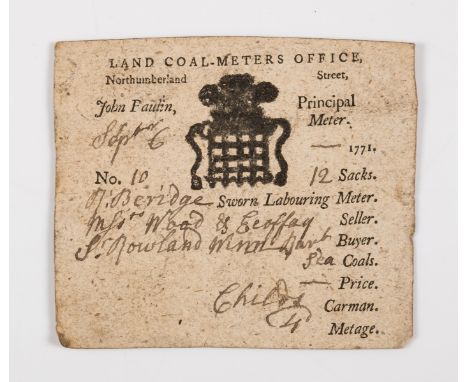 LAND COAL-METERS OFFICE,
Northumberland Street,
John Paulin, Principal
Meter.
Septr 6 — 1771.
No. 10 12 Sacks.
Beridge Sworn Labouring Meter.
Messrs Wood & Seller.
Sr Rowland Winn Bart Buyer.
Sea Coals.
— Price.
Child Carman.
4d Metage.